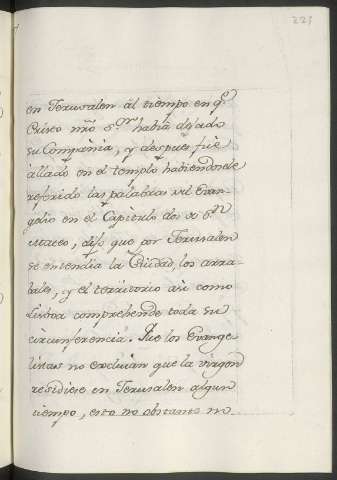 223
en Jerusalen al tiempo en q.^e
Cristo nr̃o S.^or habia dejado
su Compañia, y despues fue
allado en el templo habiendosele
referido las palabras del Evan-
gelio en el Capitulo dos de S.^n
Lucas, dijo que por Jerusalen
se entendia la Ciudad, los arra-
bales, y el territorio asi como
Lisboa comprehende toda su
circunferencia. Que los Evange-
listas no excluian que la virgen
residiese en Jerusalen algun
tiempo, esto no obstante no